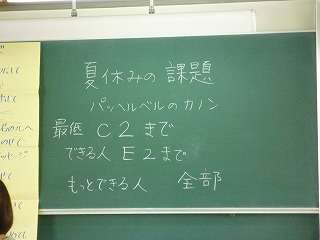 夏休みの課題
パッヘルベルのカノン
最低 C2まで
できる人 E2まで
もっとできる人 全部